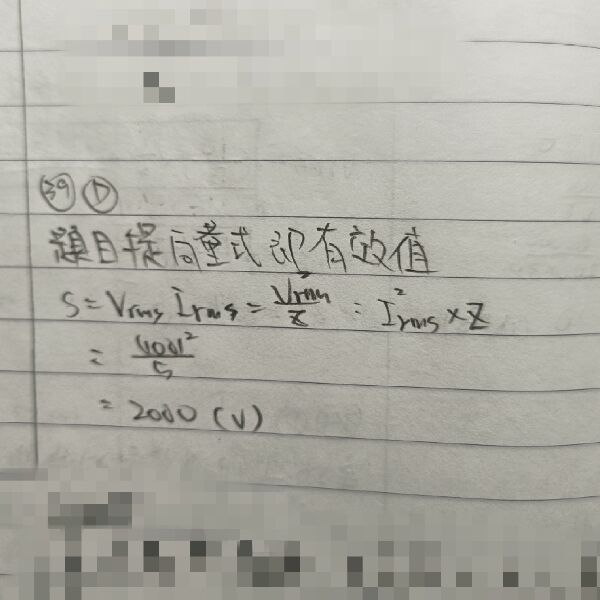 39 D
題目提向量式即有效值
S = Vrms Irms = Vrms² / Z = I²rms × Z
= (100)² / 5
= 2000 (V)